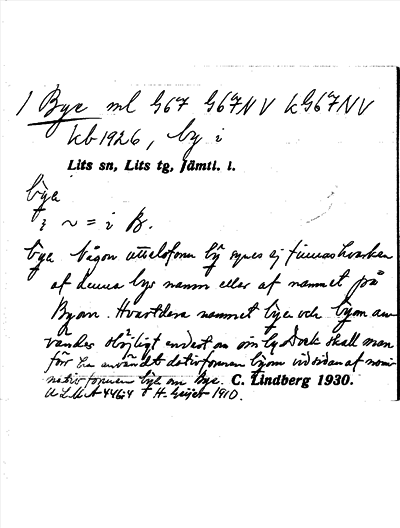 1 Bye ml G67 G67NV kG67NV
kb 1926, by i
Lits sn, Lits tg, Jämtl. l.
bya
i ~ = i B.
Någon uttalsform by synes ej finnas hvarken
af denna bys namn eller af namnet på
Byom. Hvartdera namnet bye och byom an-
vändes endast om by Dock skall man
förr ha användt dativformen byom vid sidan af nomi-
nativformen bye om Bye. C. Lindberg 1930.
H. Geijer 1910.